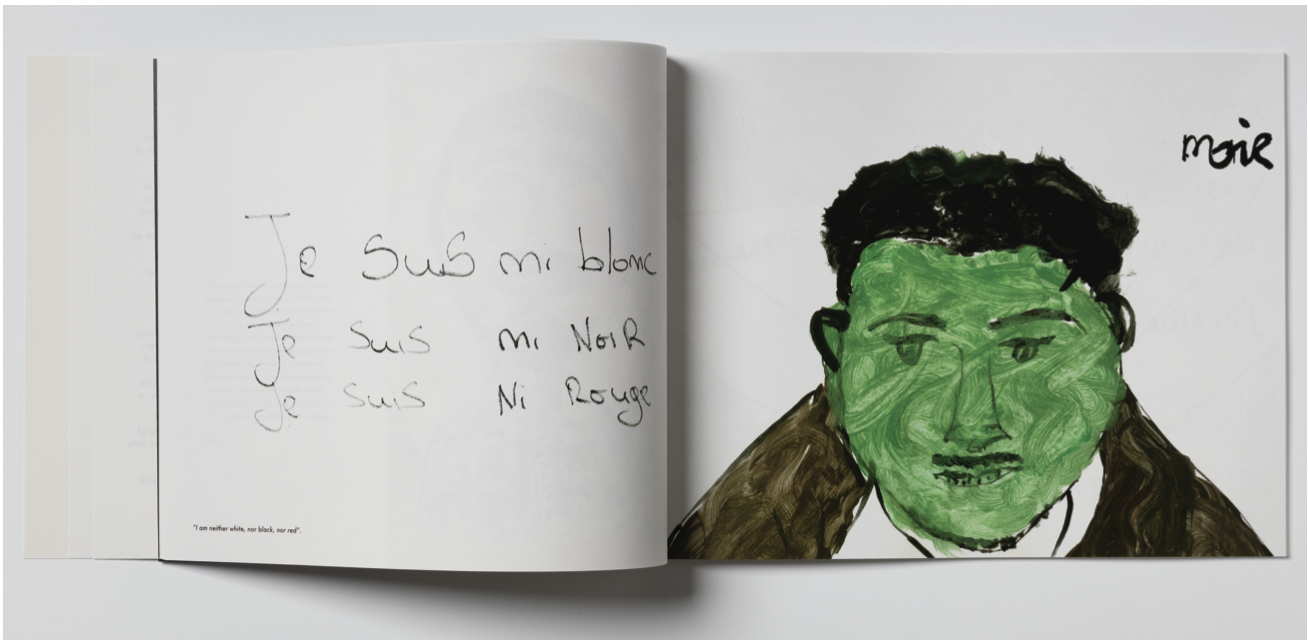 Je Suis ni blanc
Je Suis ni NoiR
Je Suis Ni Rouge
"I am neither white, nor black, nor red".
noiR